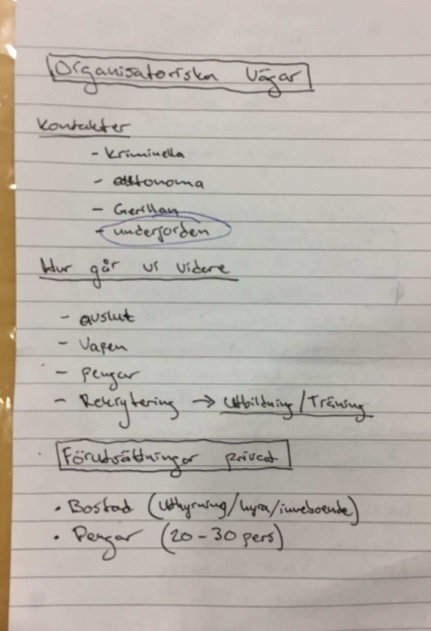 Organisatoriska vägar
Kontakter
- Kriminella
- autonoma
- Gerillan
- underjorden
Hur går vi vidare
- avslut
- Vapen
- pengar
- Rekrytering → Utbildning/Träning
Förutsättningar privat
• Bostad (uthyrning/hyra/inneboende)
• Pengar (20-30 pers)